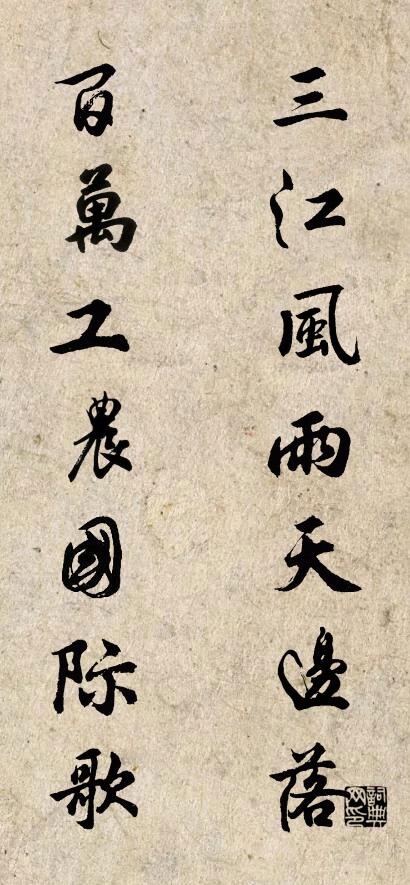 三江風雨天邊落
百萬工農國际歌
詞典网印